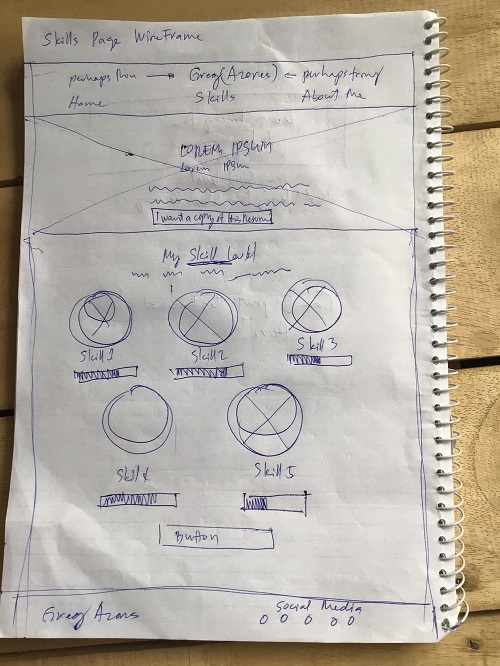 Skills Page Wireframe
perhaps Greg(Azores) perhaps
Home Skills About Me
LOREM IPSUM
Lorem IPSum
I want a copy of His Resume
My Skill Level
Skill 1 Skill 2 Skill 3
Skill 4 Skill 5
Button
Greg Azores Social Media